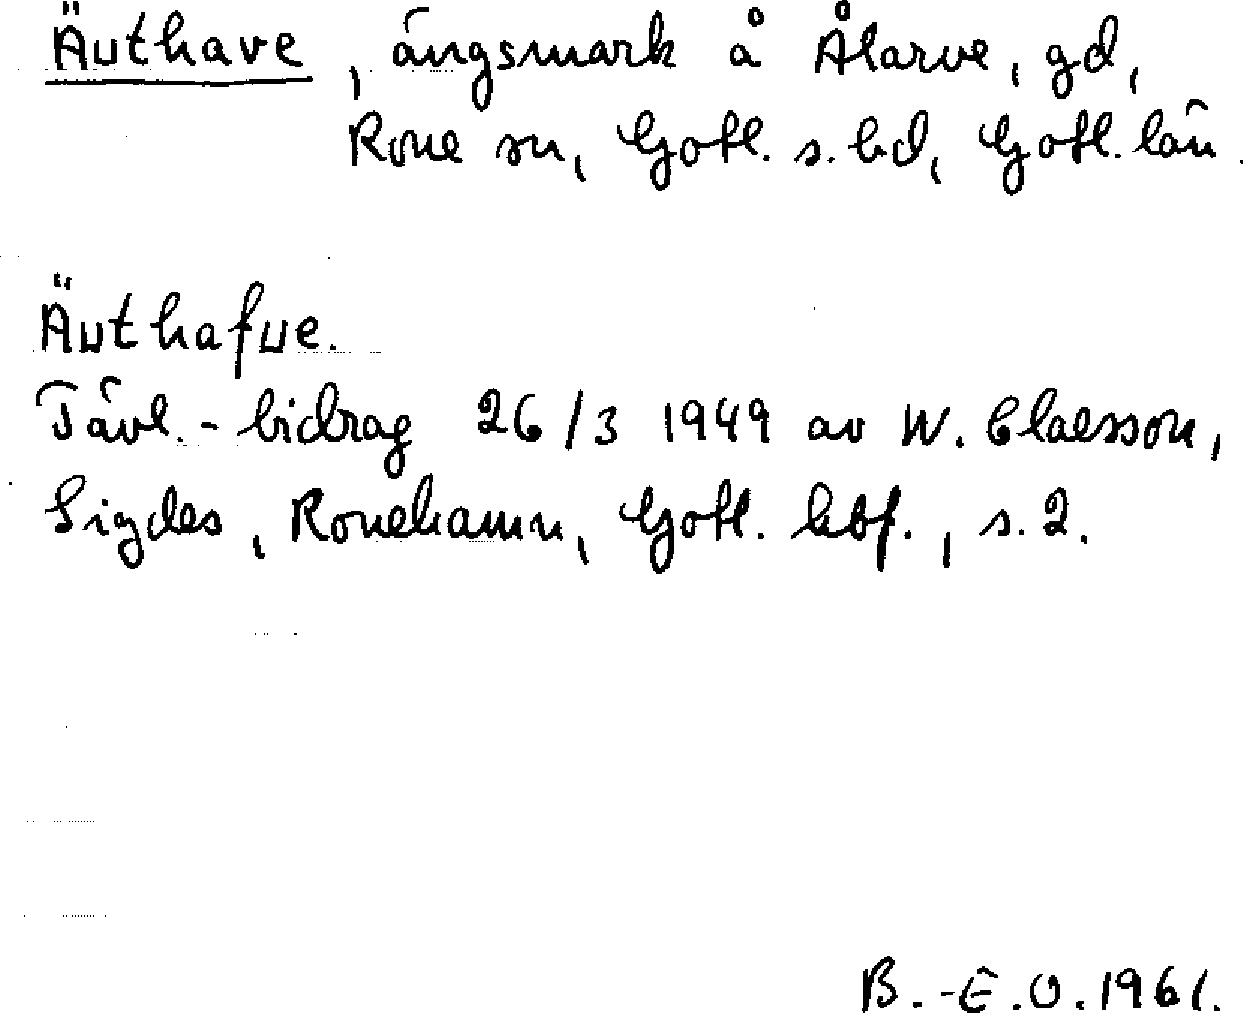 Äuthave, ängsmark å Ålarve, gd,
Rone sn, Gotl. s. hd, Gotl. län.
Äuthafve.
Tävl.-bidrag 26/3 1949 av W. Claesson,
Sigdes, Ronehamn, Gotl. hbf., s. 2.
B.-E.O. 1961.